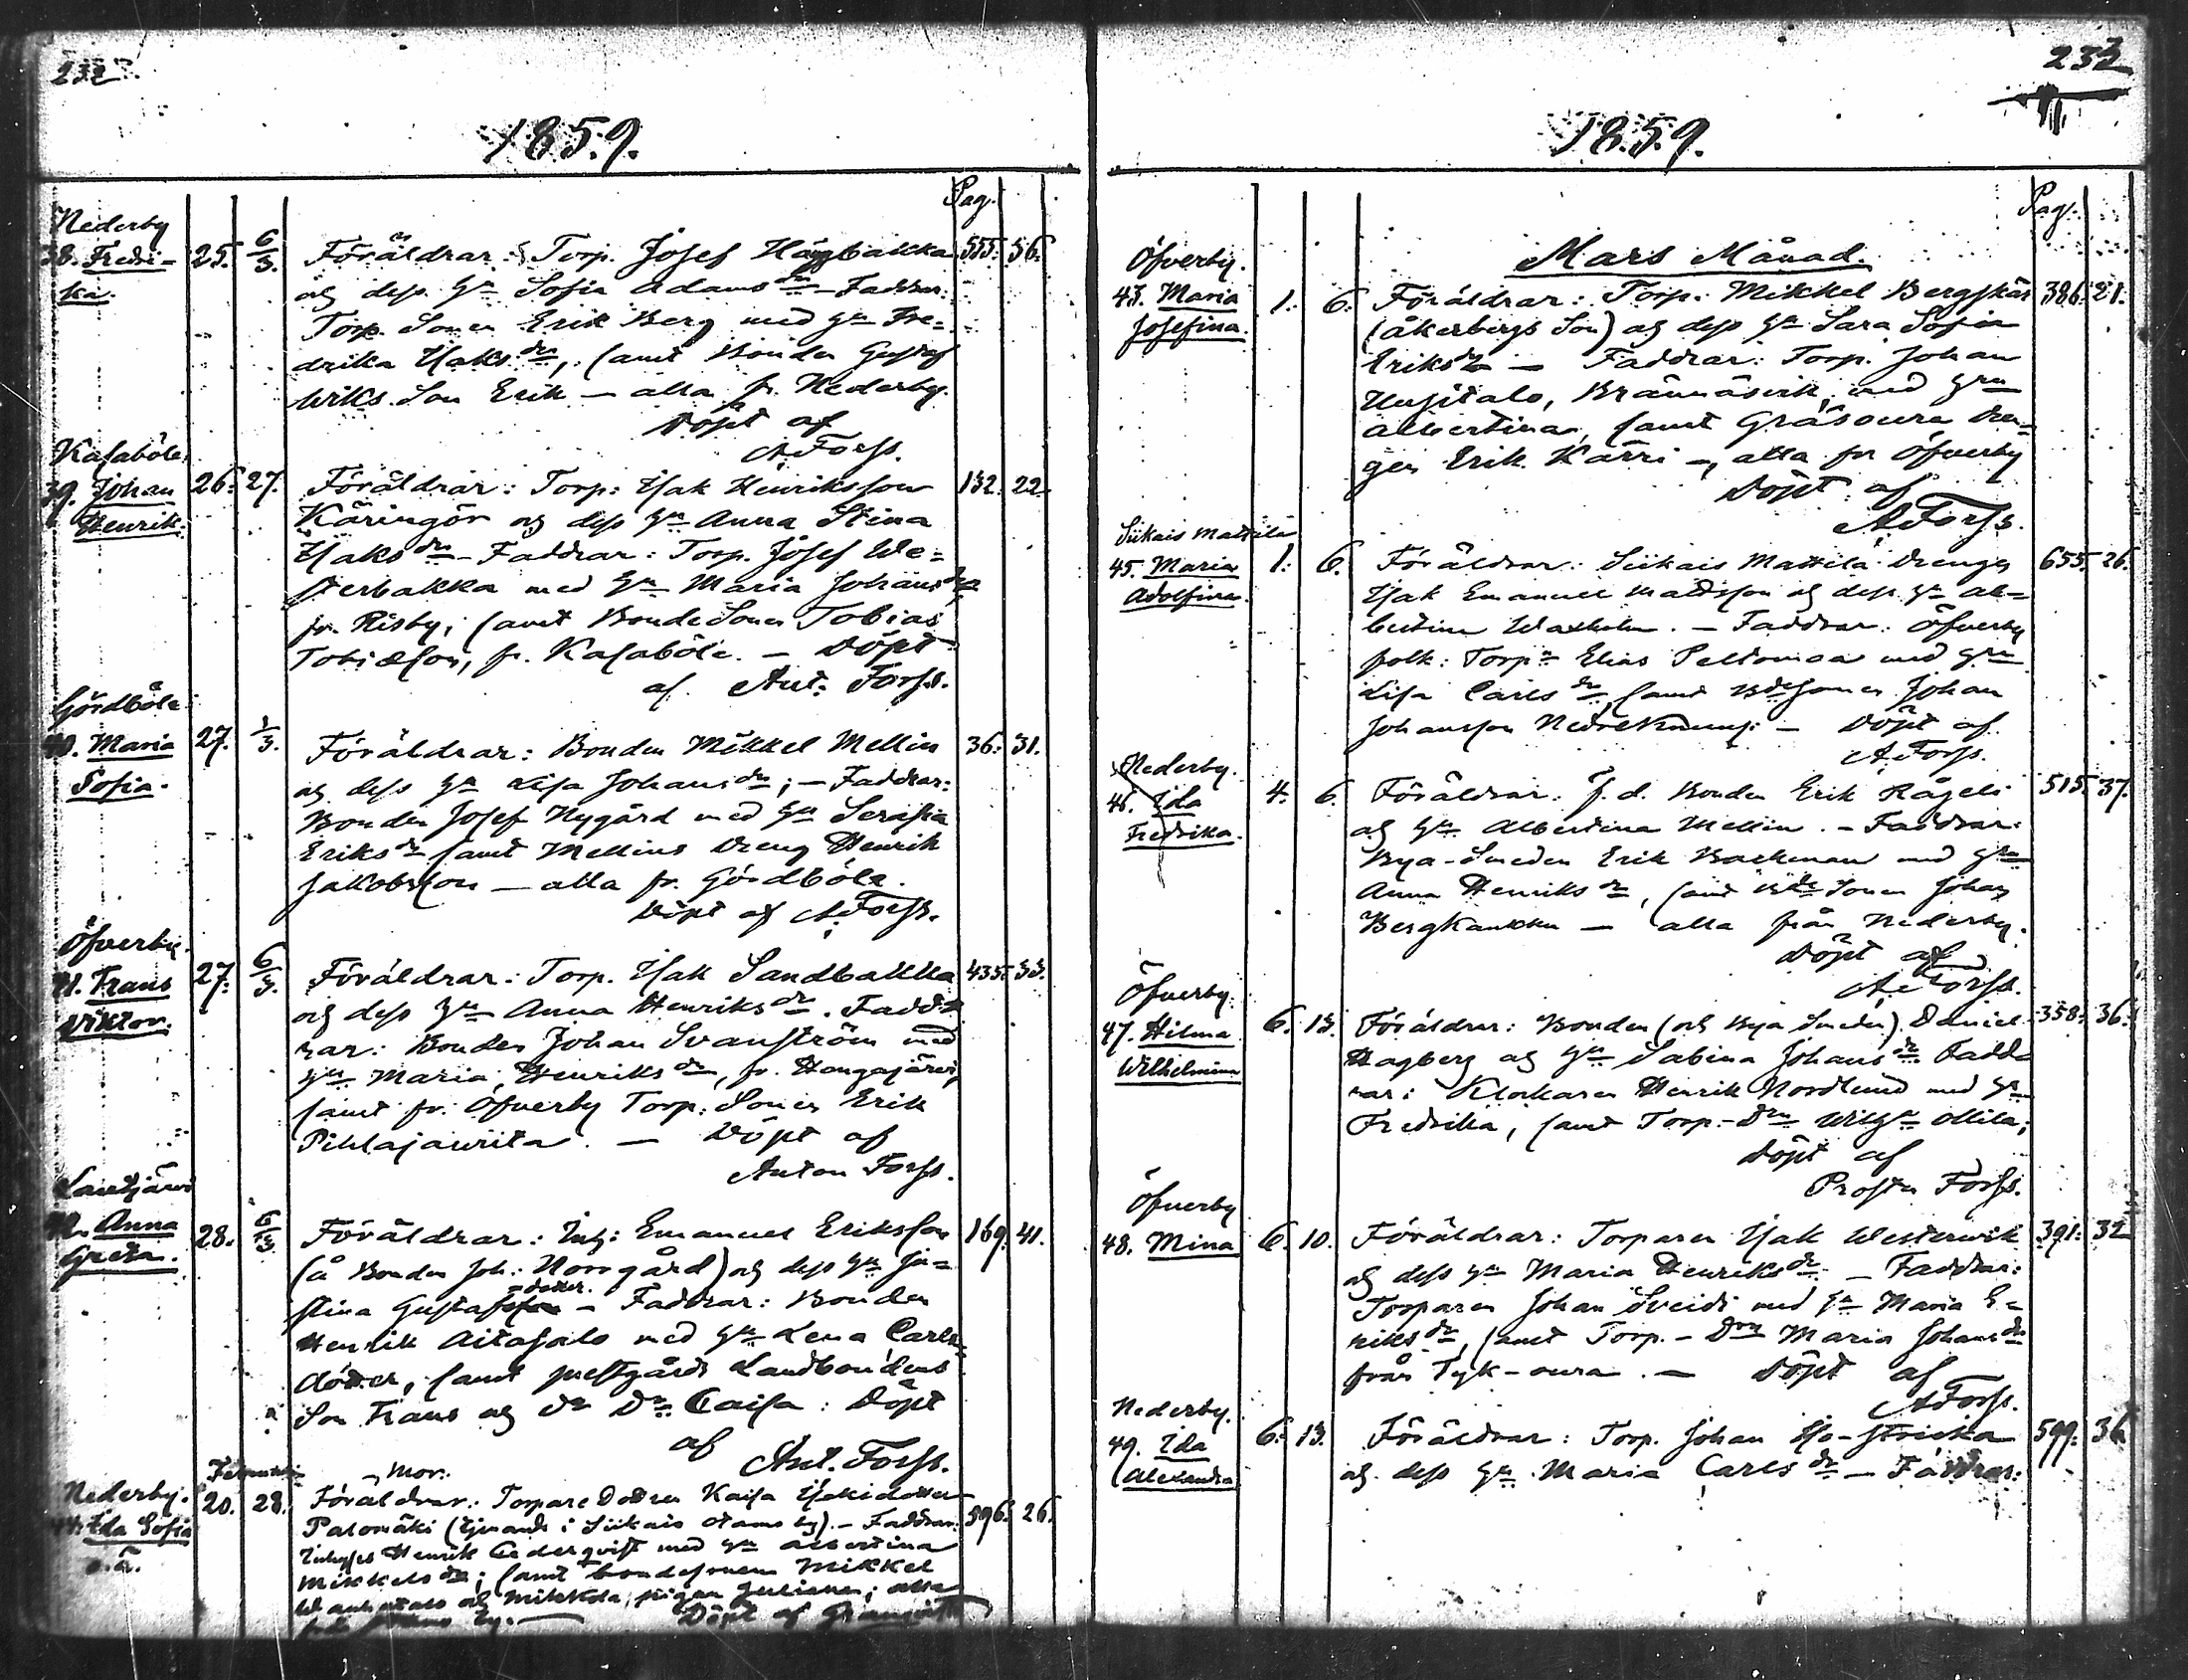 232
1859.
Pag.
Nederby
38. Fredri-
ka.
25. 6/3.
Föräldrar: Torp. Josef Högbakka 555. 36.
och dess Hu Sofia Adams dr – Faddrar:
Torp. Sonen Erik Berg med Hu Fre-
drika Isaks dr, samt Bonden Gustaf
Wiks Son Erik – alla fr. Nederby.
Döpt af
A. Forss.
Kasaböle
39. Johan
Henrik.
26. 27.
Föräldrar: Torp: Isak Henriksson 132. 22
Käringör och dess Hu Anna Stina
Isaks dr – Faddrar: Torp. Josef We-
sterbakka med Hu Maria Johans dr
fr. Risby, samt BondeSonen Tobias
Tobiæson, fr. Kasaböle. – Döpt
af. Ant. Forss.
Gördböle
40. Maria
Sofia.
27. 1/3.
Föräldrar: Bonden Mikkel Mellin 36. 31.
och dess Hu Lisa Johans dr; – Faddrar:
Bonden Josef Nygård med Hu Serafia
Eriks dr samt Mellins Dreng Henrik
Jakobsson – alla fr. Gördböle.
Döpt af A. Forss.
Öfverby.
41. Frans
Viktor.
27. 6/3.
Föräldrar: Torp. Isak Sandbakka 435. 33.
och dess Hu Anna Henriks dr. Fadd-
rar: Bonden Johan Svanström med
Hu Maria Henriks dr, fr. Hongajärvi,
samt fr. Öfverby Torp. Sonen Erik
Pihlajaviita. – Döpt af
Anton Forss.
Lautjärvi
42. Anna
Greta.
28. 6/3
Föräldrar: Inh: Emanuel Eriksson 169. 41.
(å Bonden Joh: Norrgård) och dess Hu Ju-
stina Gustafsdotter. – Faddrar: Bonden
Henrik Aitasalo med Hu Lena Carls
dotter, samt prestgårds Landbondens
Son Frans och Dr Caisa: Döpt
af
Ant. Forss.
Februari
Nederby.
44. Ida Sofia
o.ä.
20. 28.
Mor:
Föräldrar: Torpare Dottren Kaisa Isaksdotter
Palomäki (tjenande i Siikais Otamo by). – Faddrar: 596. 26.
Inhyses Henrik Cederqvist med Hu Albertina
Mikkels dr; samt bondesonen Mikkel
och Mikkola, pigan Juliana; alla
by. – Döpt af
233
1859.
Pag.
Mars Månad.
Öfverby.
43. Maria
Josefina.
1. 6.
Föräldrar: Torp. Mikkel Bergskär 386. 21.
(Åkerbergs Son) och dess Hu Sara Sofia
Eriksdr – Faddrar: Torp. Johan
Uusitalo, Brännäsvik, med Hru
Albertina, samt Gråsoura Dren-
gen Erik Kärri –, alla fr Öfverby
Döpt af
A. Forss.
Siikais Mattila
45. Maria
Adolfina.
1. 6.
Föräldrar: Siikais Mattila Drengen 655. 26.
Isak Emanuel Mattsson och dess Hu Al-
bertina Waxholm. – Faddrar: Öfverby
folk: Torp:n Elias Peltomaa med Hru
Lisa Carls dr, samt BdeSonen Johan
Johansson Nedre – Döpt af
A. Forss.
Nederby.
46. Ida
Fredrika.
4. 6.
Föräldrar: f. d. Bonden Erik Rågeli 515. 37.
och Hu Albertina Mellin. – Faddrar:
Bya-Smeden Erik Backman med Hru
Anna Henriks dr, samt Bde Sonen Johan
Bergkaukka – alla från Nederby.
Döpt af
A. Forss.
Öfverby.
47. Hilma
Wilhelmina
6. 13.
Föräldrar: Bonden (och Bya Smeden) Daniel 358. 36.
Hagberg och Hu Sabina Johans dr. Fadd-
rar: Klockaren Henrik Nordlund med Hu
Fredrika, samt Torp.-Dren Ollila;
Döpt af
Prosten Forss.
Öfverby
48. Mina
6. 10.
Föräldrar: Torparen Isak Westervik 391. 32
och dess Hu Maria Henriks dr. – Faddrar:
Torparen Johan Sveidi med Hu Maria E-
riks dr, samt Torp.-Dren Maria Johans dr
från Tyk-oura. – Döpt af
A Forss.
Nederby.
49. Ida
Alexandra
6. 13.
Föräldrar: Torp. Johan Iso-Stricka 599. 36
och dess Hu Maria Carls dr – Faddrar: